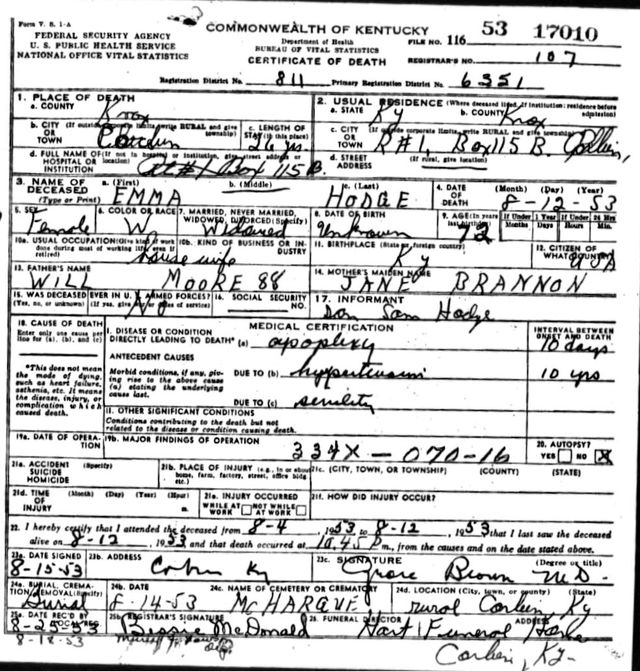 Form V. S. 1-A
FEDERAL SECURITY AGENCY
U. S. PUBLIC HEALTH SERVICE
NATIONAL OFFICE VITAL STATISTICS
COMMONWEALTH OF KENTUCKY
Department of Health
BUREAU OF VITAL STATISTICS
CERTIFICATE OF DEATH
FILE NO. 116 53 17010
REGISTRAR'S NO. 107
Registration District No. 811 Primary Registration District No. 6351
1. PLACE OF DEATH
a. COUNTY Knox
2. USUAL RESIDENCE (Where deceased lived. If institution: residence before admission)
a. STATE Ky b. COUNTY Knox
b. CITY (If outside corporate limits, write RURAL and give township)
OR TOWN Corbin
c. LENGTH OF STAY (in this place) 26 yrs.
c. CITY (If outside corporate limits, write RURAL and give township)
OR TOWN R#1, Box 115 B,
d. FULL NAME OF (If not in hospital or institution, give street address or location)
HOSPITAL OR INSTITUTION Rt #1 Box 115 B.
d. STREET ADDRESS (If rural, give location)
3. NAME OF DECEASED (Type or Print)
a. (First) EMMA
b. (Middle)
c. (Last) HODGE
4. DATE OF DEATH (Month) (Day) (Year) 8-12-53
5. SEX Female
6. COLOR OR RACE W
7. MARRIED, NEVER MARRIED, WIDOWED, DIVORCED (Specify) Widowed
8. DATE OF BIRTH Unknown
9. AGE (In years last birthday)
If Under 1 Year Months Days
If Under 24 Hrs. Hours Min.
10a. USUAL OCCUPATION (Give kind of work done during most of working life, even if retired) housewife
10b. KIND OF BUSINESS OR INDUSTRY
11. BIRTHPLACE (State or foreign country) Ky
12. CITIZEN OF WHAT COUNTRY? USA
13. FATHER'S NAME
WILL MOORE 88
14. MOTHER'S MAIDEN NAME
JANE BRANNON
15. WAS DECEASED EVER IN U. S. ARMED FORCES?
(Yes, no, or unknown) (If yes, give war or dates of service) No
16. SOCIAL SECURITY NO.
17. INFORMANT
Son Sam Hodge
18. CAUSE OF DEATH
Enter only one cause per line for (a), (b), and (c)
*This does not mean the mode of dying, such as heart failure, asthenia, etc. It means the disease, injury, or complication which caused death.
MEDICAL CERTIFICATION
INTERVAL BETWEEN ONSET AND DEATH
I. DISEASE OR CONDITION
DIRECTLY LEADING TO DEATH* (a) apoplexy 10 days
ANTECEDENT CAUSES
Morbid conditions, if any, giving rise to the above cause (a) stating the underlying cause last.
DUE TO (b) hypertension 10 yrs
DUE TO (c) senility
II. OTHER SIGNIFICANT CONDITIONS
Conditions contributing to the death but not related to the disease or condition causing death.
19a. DATE OF OPERATION
19b. MAJOR FINDINGS OF OPERATION
334X-070-16
20. AUTOPSY?
YES NO X
21a. ACCIDENT SUICIDE HOMICIDE (Specify)
21b. PLACE OF INJURY (e.g., in or about home, farm, factory, street, office bldg. etc.)
21c. (CITY, TOWN, OR TOWNSHIP) (COUNTY) (STATE)
21d. TIME OF INJURY (Month) (Day) (Year) (Hour) m.
21e. INJURY OCCURRED
WHILE AT WORK NOT WHILE AT WORK
21f. HOW DID INJURY OCCUR?
22. I hereby certify that I attended the deceased from 8-4, 1953 to 8-12, 1953 that I last saw the deceased
alive on 8-12, 1953 and that death occurred at 10.45 P m., from the causes and on the date stated above.
23a. DATE SIGNED 8-15-53
23b. ADDRESS Corbin Ky
23c. SIGNATURE (Degree or title)
Brown M.D.
24a. BURIAL, CREMATION, REMOVAL (Specify) Burial
24b. DATE 8-14-53
24c. NAME OF CEMETERY OR CREMATORY MCHARGUE
24d. LOCATION (City, town, or county) (State)
rural Corbin, Ky
25a. DATE REC'D BY LOCAL REG. 8-25-53
8-18-53
25b. REGISTRAR'S SIGNATURE
McDonald
25. FUNERAL DIRECTOR ADDRESS
Hart Funeral Home
Corbin, Ky